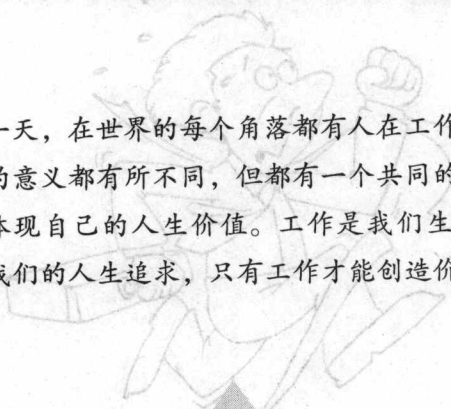 一天，在世界的每个角落都有人在工作
的意义都有所不同，但都有一个共同的
体现自己的人生价值。工作是我们生
我们的人生追求，只有工作才能创造价